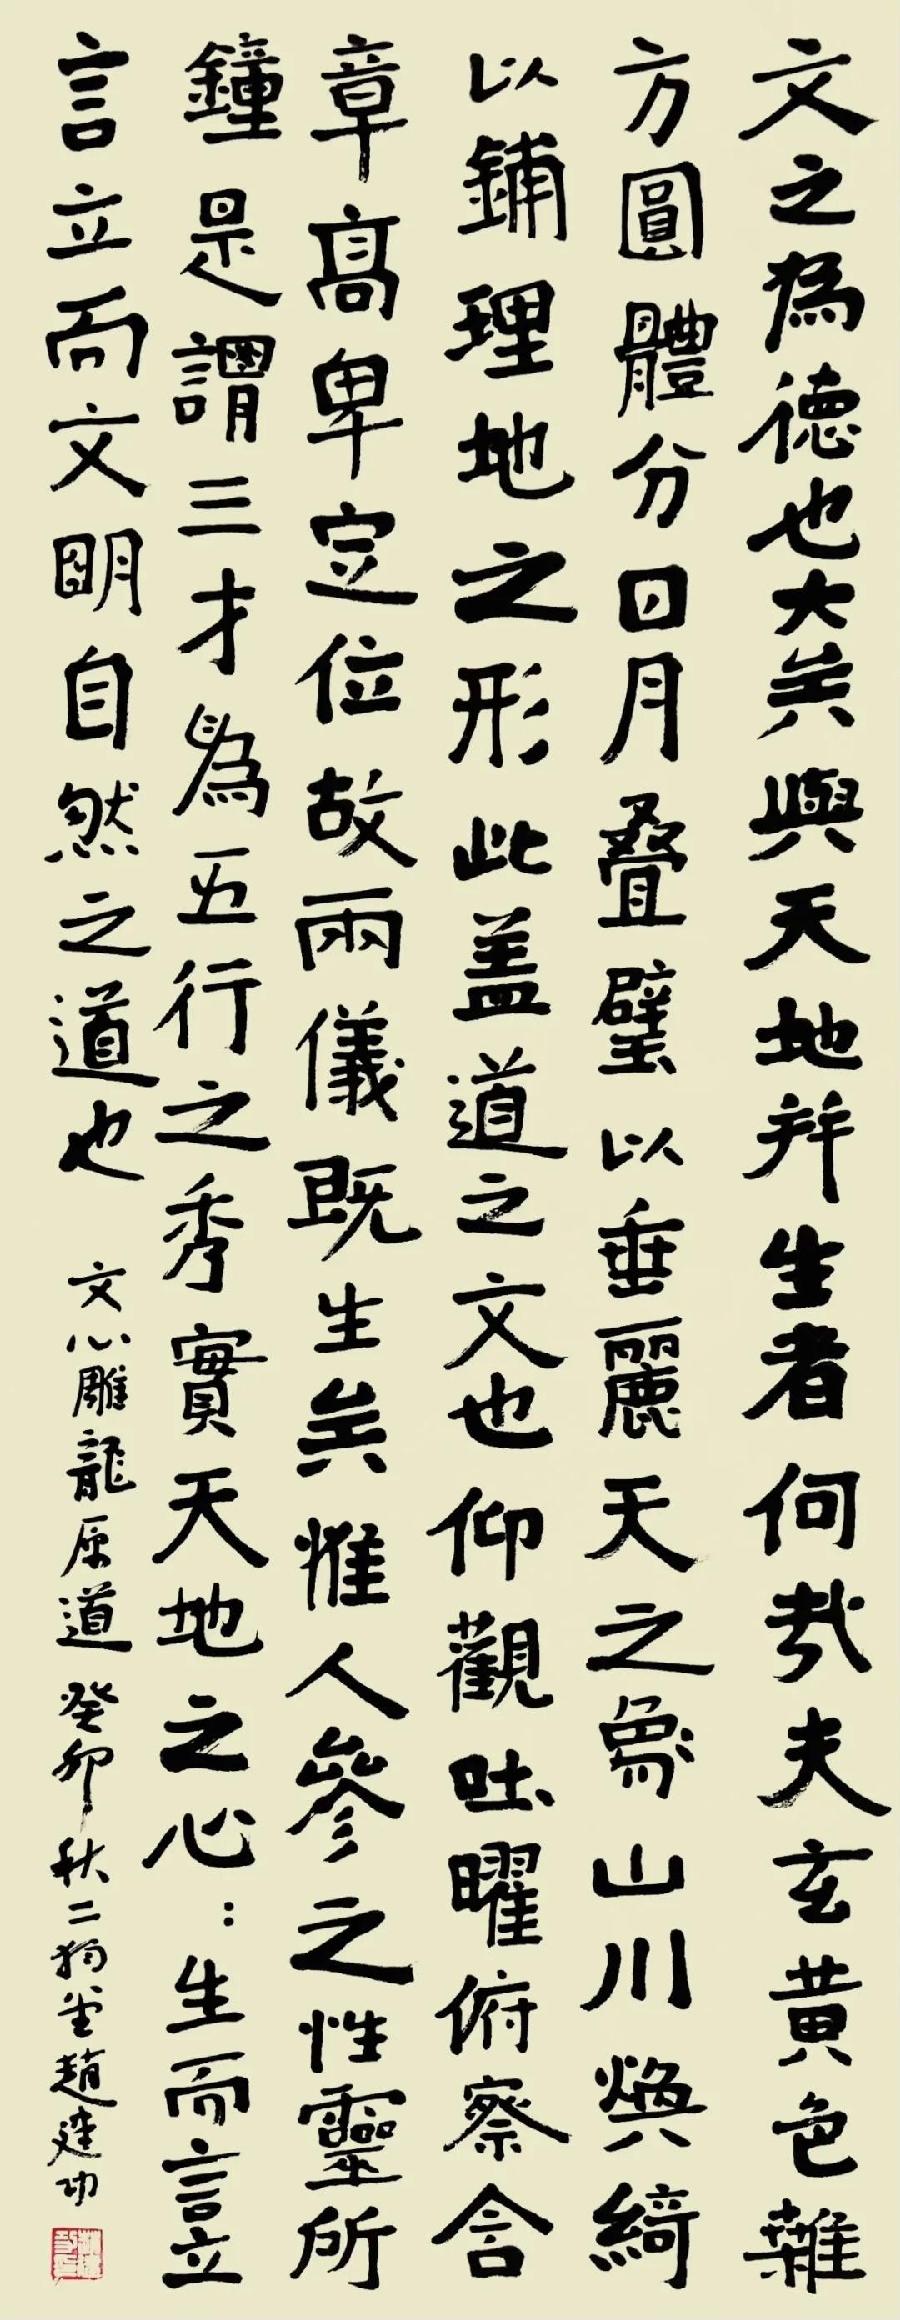 文之為德也大矣與天地并生者何哉夫玄黄色雜
方圓體分日月叠璧以垂麗天之象山川煥綺
以鋪理地之形此盖道之文也仰觀吐曜俯察含
章高卑定位故兩儀既生矣惟人參之性靈所
鐘是謂三才為五行之秀實天地之心:生而言立
言立而文明自然之道也
文心雕龍原道 癸卯秋二狗堂趙建功